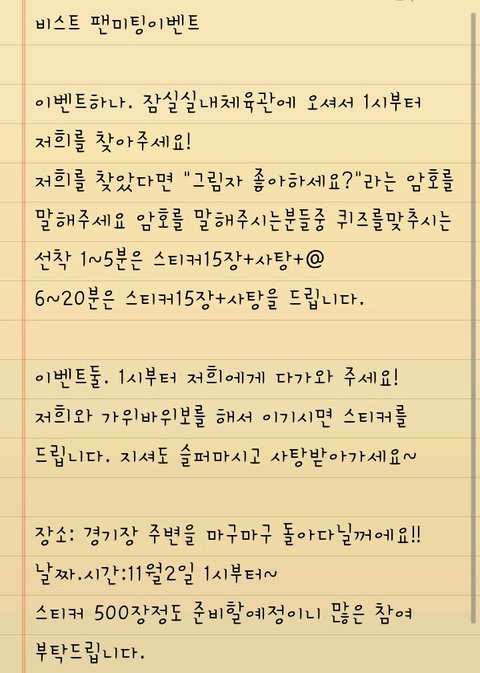 비스트 팬미팅이벤트
이벤트하나. 잠실실내체육관에 오셔서 1시부터
저희를 찾아주세요!
저희를 찾았다면 "그림자 좋아하세요?"라는 암호를
말해주세요 암호를 말해주시는분들중 퀴즈를맞추시는
선착 1~5분은 스티커15장+사탕+@
6~20분은 스티커15장+사탕을 드립니다.
이벤트둘. 1시부터 저희에게 다가와 주세요!
저희와 가위바위보를 해서 이기시면 스티커를
드립니다. 지셔도 슬퍼마시고 사탕받아가세요~
장소: 경기장 주변을 마구마구 돌아다닐꺼에요!!
날짜.시간:11월2일 1시부터~
스티커 500장정도 준비할예정이니 많은 참여
부탁드립니다.